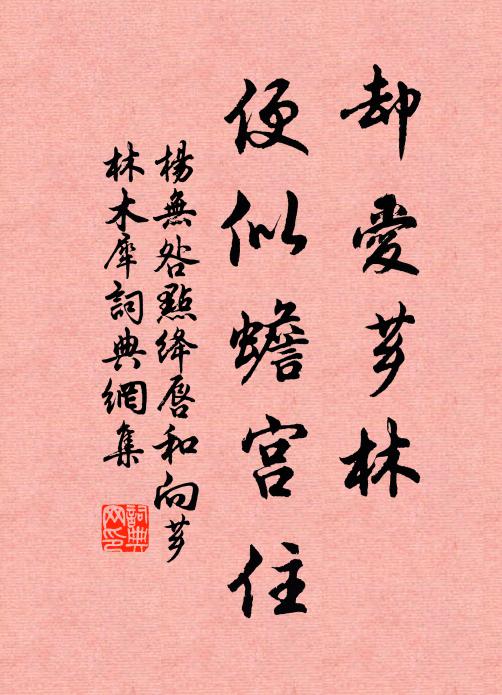 却愛芗林
便似蟾宮住
楊無咎點絳唇和向芗
林木犀詞典網集
詞典
网印